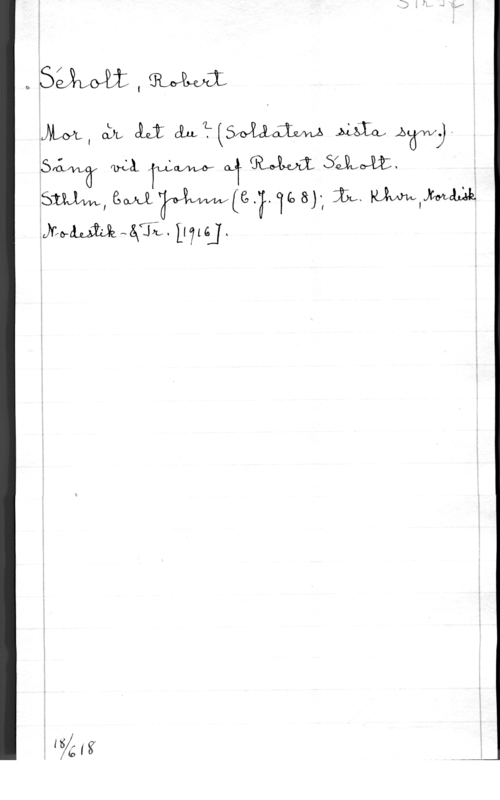 Séholt, Robert
Mor, är det du? (Soldatens sista syn.)
Sång vid piano af Robert Séholt.
Sthlm, Carl Johnn (C.J. 968); tr. Khvn, Nordisk
Nodestik-&Tr. [1916].
18/6 18